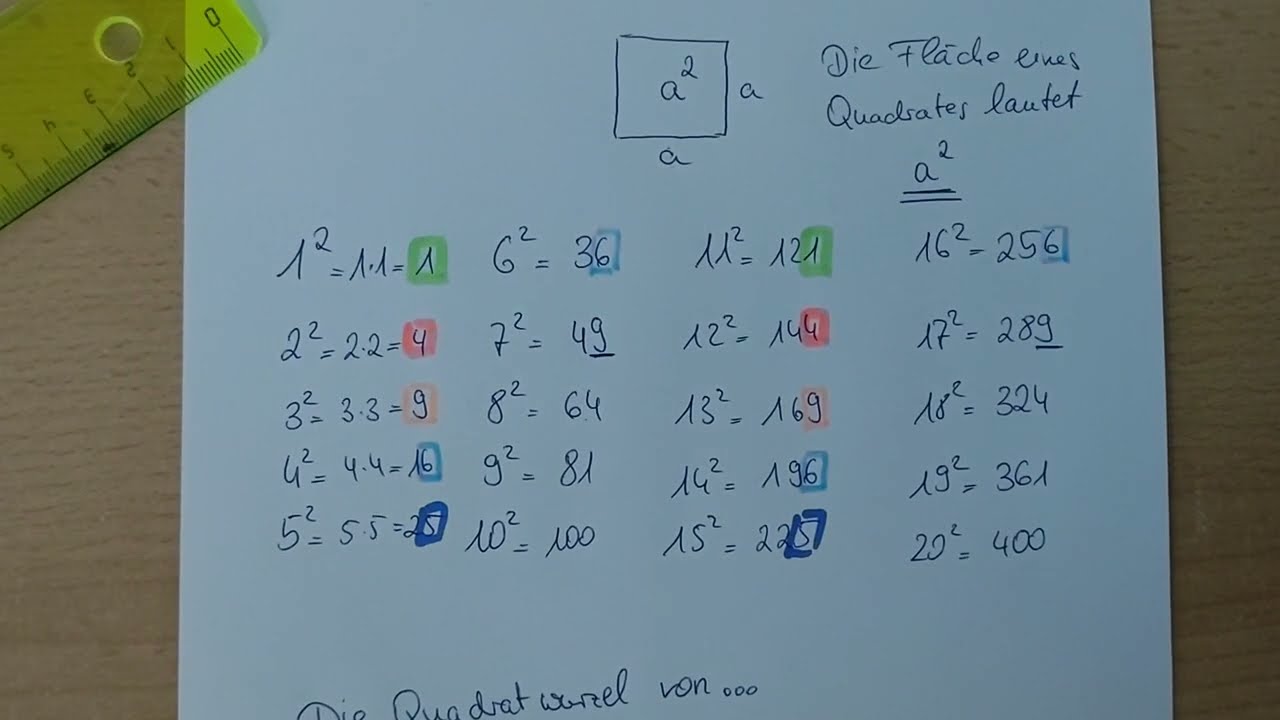 0 1 2 3 4 5
a²
a
a
Die Fläche eines
Quadrates lautet
a²
1² = 1·1 = 1
2² = 2·2 = 4
3² = 3·3 = 9
4² = 4·4 = 16
5² = 5·5 = 25
6² = 36
7² = 49
8² = 64
9² = 81
10² = 100
11² = 121
12² = 144
13² = 169
14² = 196
15² = 225
16² = 256
17² = 289
18² = 324
19² = 361
20² = 400
Die Quadratwurzel von...